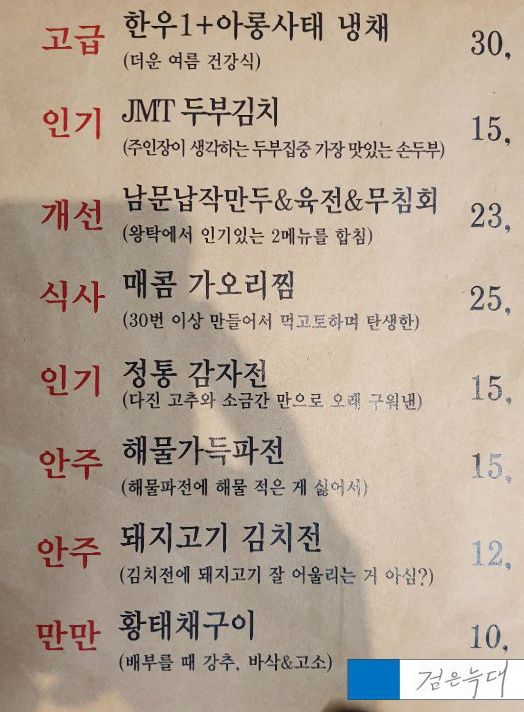 고급 한우1+아롱사태 냉채 30,
(더운 여름 건강식)
인기 JMT 두부김치 15,
(주인장이 생각하는 두부집중 가장 맛있는 손두부)
개선 남문납작만두&육전&무침회 23,
(왕탁에서 인기있는 2메뉴를 합침)
식사 매콤 가오리찜 25,
(30번 이상 만들어서 먹고토하며 탄생한)
인기 정통 감자전 15,
(다진 고추와 소금간 만으로 오래 구워낸)
안주 해물가득파전 15,
(해물파전에 해물 적은 게 싫어서)
안주 돼지고기 김치전 12,
(김치전에 돼지고기 잘 어울리는 거 아심?)
만만 황태채구이 10,
(배부를 때 강추, 바삭&고소)
검은늑대